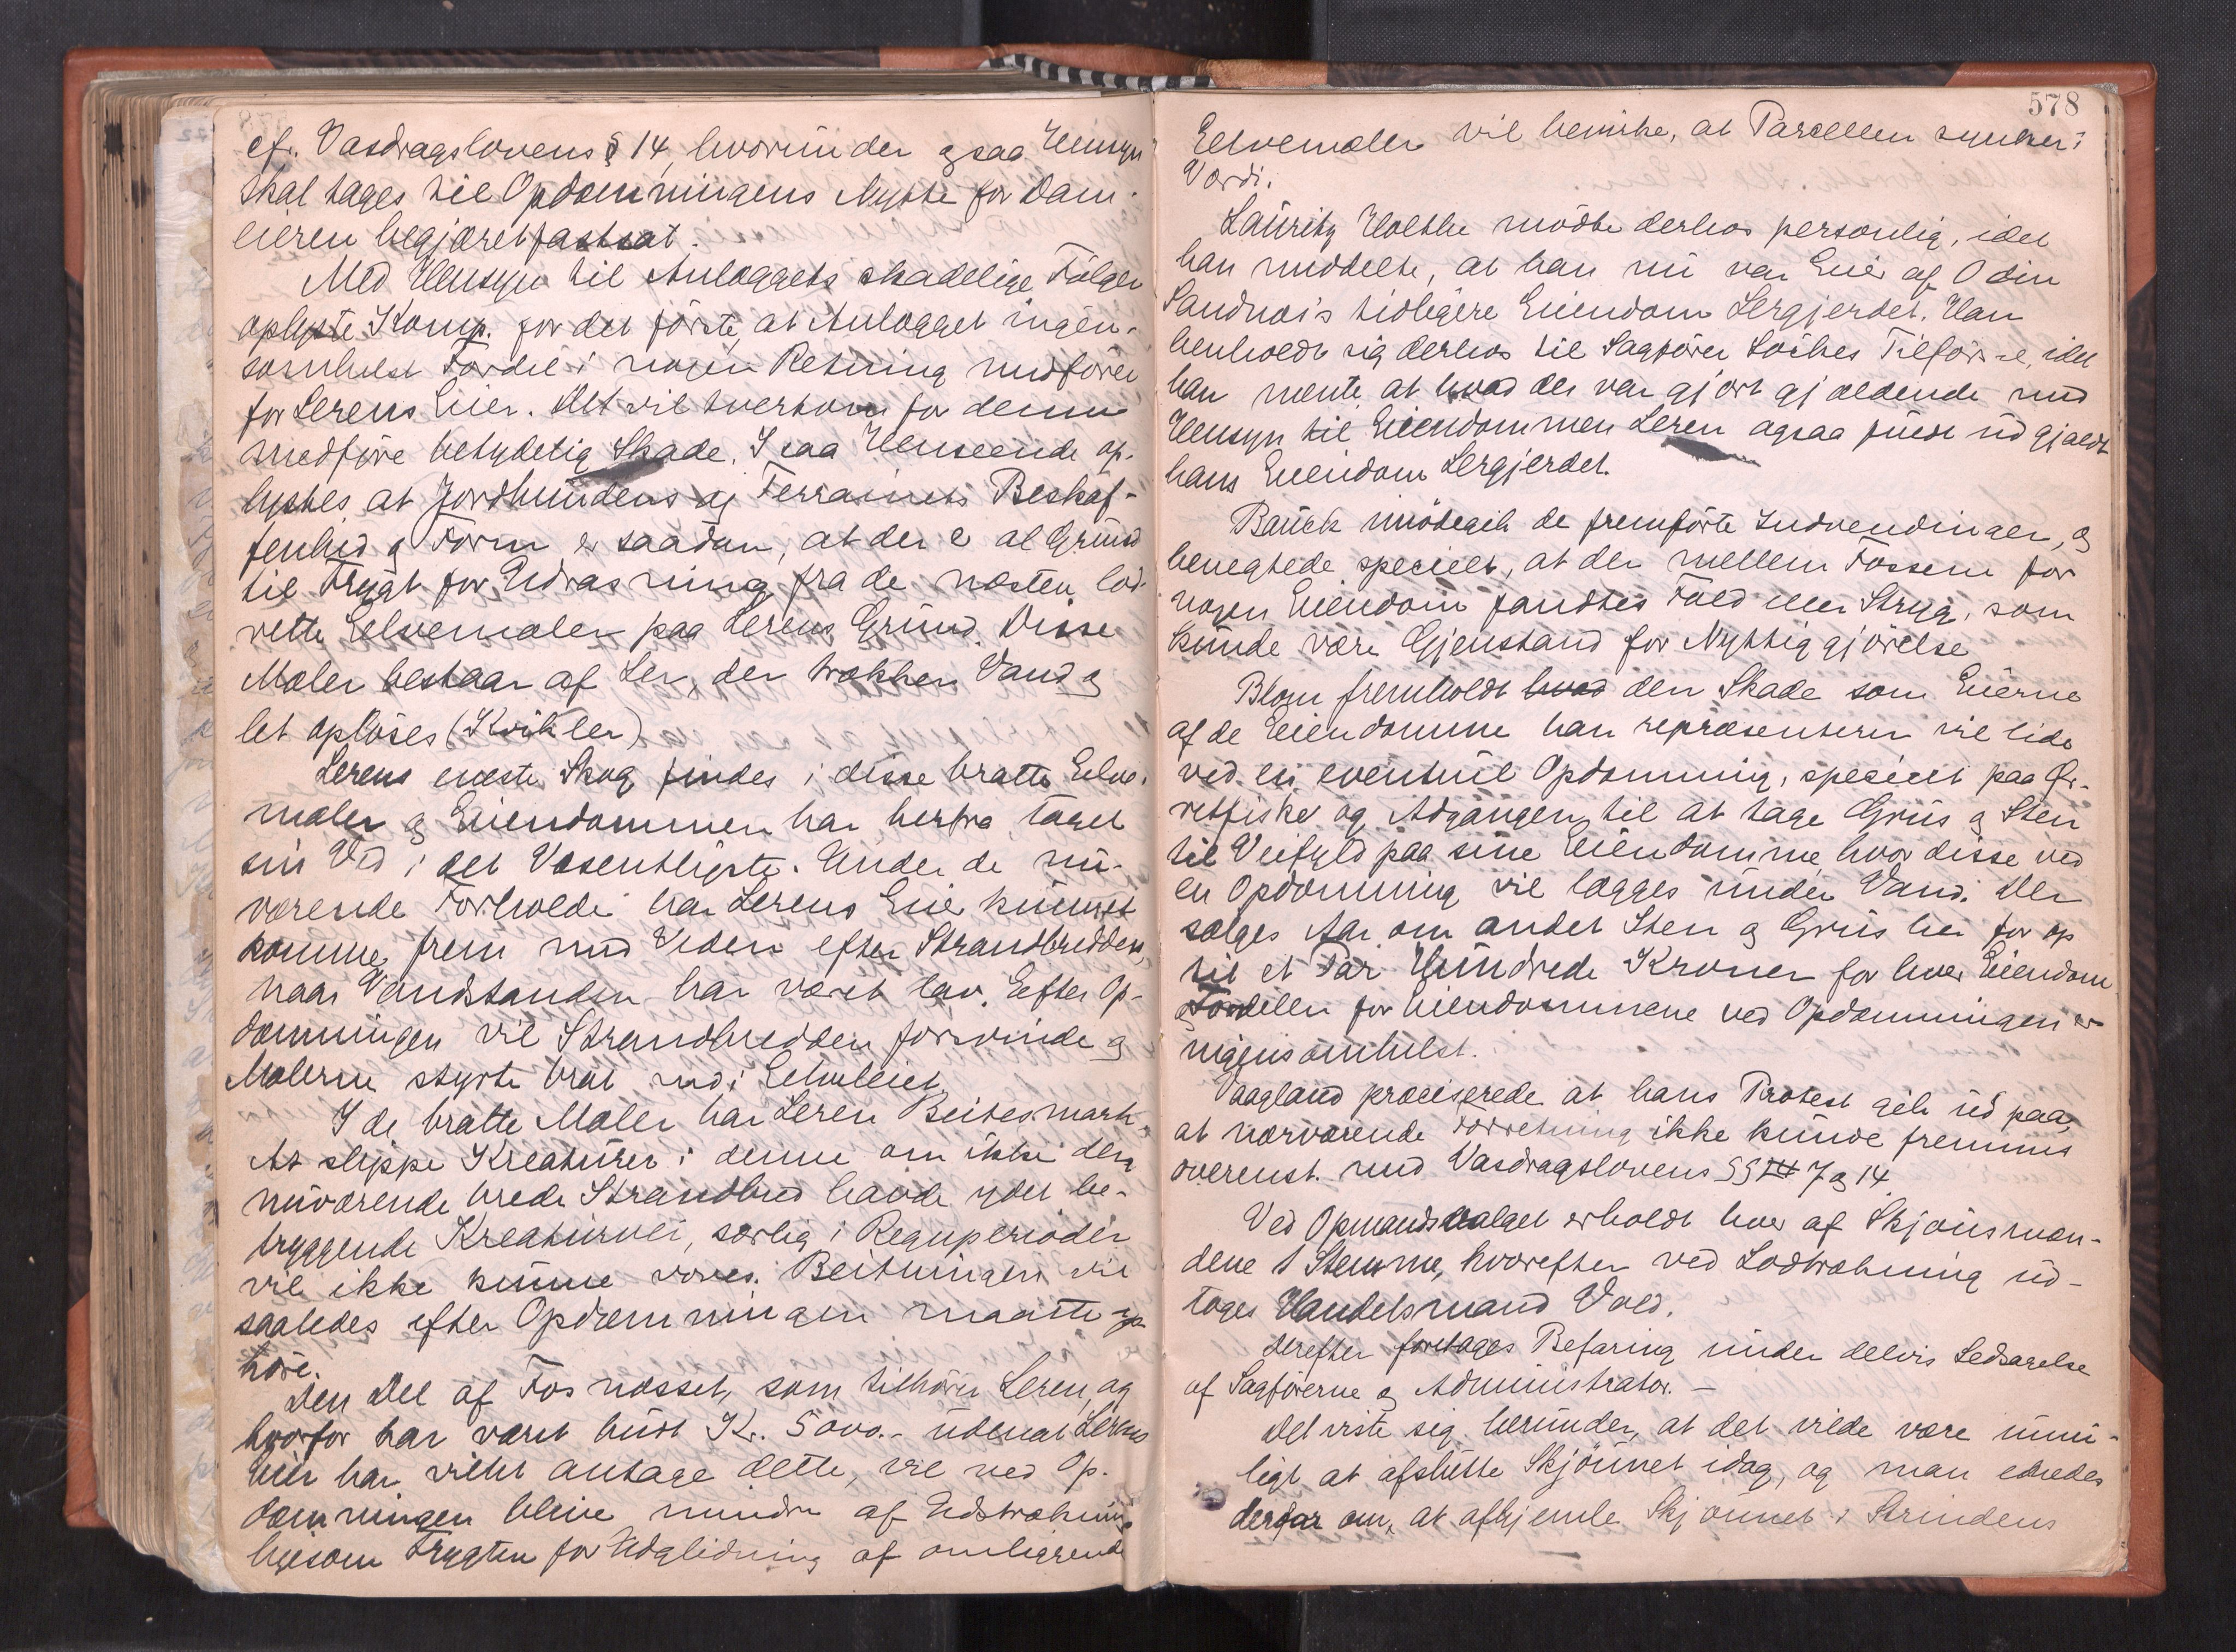 cfr. Vasdragslovens § 14, hvorunder ogsaa Hensyn
skal tages til Opdæmningens Nytte for Dam-
eieren begjæret fastsat.
Med Hensyn til Anlæggets skadelige Følger
oplyste Komp. for det første, at Anlægget ingen-
somhelst Fordel i nogen Retning medfører
for Lerens Eier. Det vil tvertom for denne
medføre betydelig Skade. I saa Henseende op-
lystes at Jordbundens og Terrainets Beskaf-
fenhed og Form er saadan, at der er al Grund
til Frygt for Udrasning fra de næsten lod-
rette Elvemæler paa Lerens Grund. Disse
Mæler bestaar af Ler, der trækker Vand og
let opløses (Kvikler)
Lerens eneste Skog findes i disse bratte Elve-
mæler og Eiendommen har herfra taget
sin Ved i det Væsentligste. Under de nu-
værende Forholde har Lerens Eier kunnet
komme frem med Veden efter Strandbredden,
naar Vandstanden har været lav. Efter Op-
dæmningen vil Strandbredden forsvinde og
Mælerne styrte brat ned i Elveleiet.
I de bratte Mæler har Leren Beitesmark.
At slippe Kreaturer i denne om ikke den
nuværende brede Strandbred havde ydet be-
tryggende Kreaturvei, særlig i Regnperioder
vil ikke kunne voves. Beitningen vil
saaledes efter Opdæmningen maatte op-
høre.
Den Del af Fosnæsset, som tilhører Leren, og
hvorfor har været budt Kr. 5000.- uden at Lerens
Eier har villet antage dette, vil ved Op-
dæmningen blive mindre af Udstrækning
ligesom Frygten for Udglidning af omliggende
578
Elvemæler vil bevirke, at Parcellen synker i
Værdi.
Lauritz Holthe mødte derhos personlig, idet
han meddelte, at han nu var Eier af Odin
Sandnæs tidligere Eiendom Lergjerdet. Han
henholdt sig derhos til Sagfører Tilførsel, idet
han mente at hvad der var gjort gjældende med
Hensyn til Eiendommen Leren ogsaa fuldt ud gjaldt
hans Eiendom Lergjerdet.
Bauck imødegik de fremførte Indvendinger, og
benegtede specielt, at der mellem Fossene for
nogen Eiendom fandtes Fald eller Stryg, som
kunde være Gjenstand for Nyttiggjørelse
Blom fremholdt hvad den Skade som Eierne
af de Eiendomme han repræsenterer vil lide
ved en eventuel Opdæmning, specielt paa Ør-
retfisket og Adgangen til at tage Grus og Sten
til Veifyld paa sine Eiendomme, hvor disse ved
en Opdæmning vil lægges under Vand. Der
sælges Aar om andet Sten og Grus her for op
til et Par Hundrede Kroner for hver Eiendom
og Fordelen for Eiendommene ved Opdæmningen er
ingensomhelst.
Vaagland præciserede at hans Protest gik ud paa,
at nærværende Forretning ikke kunde fremmes
overenst. med Vasdragslovens §§ 7 og 14
Ved Opmandsvalget erholdt hver af Skjønsmæn-
dene 1 Stemme, hvorefter ved Lodtrækning ud-
toges Handelsmand Vold.
Derefter foretoges Befaring under delvis Ledsagelse
af Sagførerne og Administrator. -
Det viste sig herunder, at det vilde være umu-
ligt at afslutte Skjønnet idag, og man enedes
derfor om, at afhjemle Skjønnet i Strindens